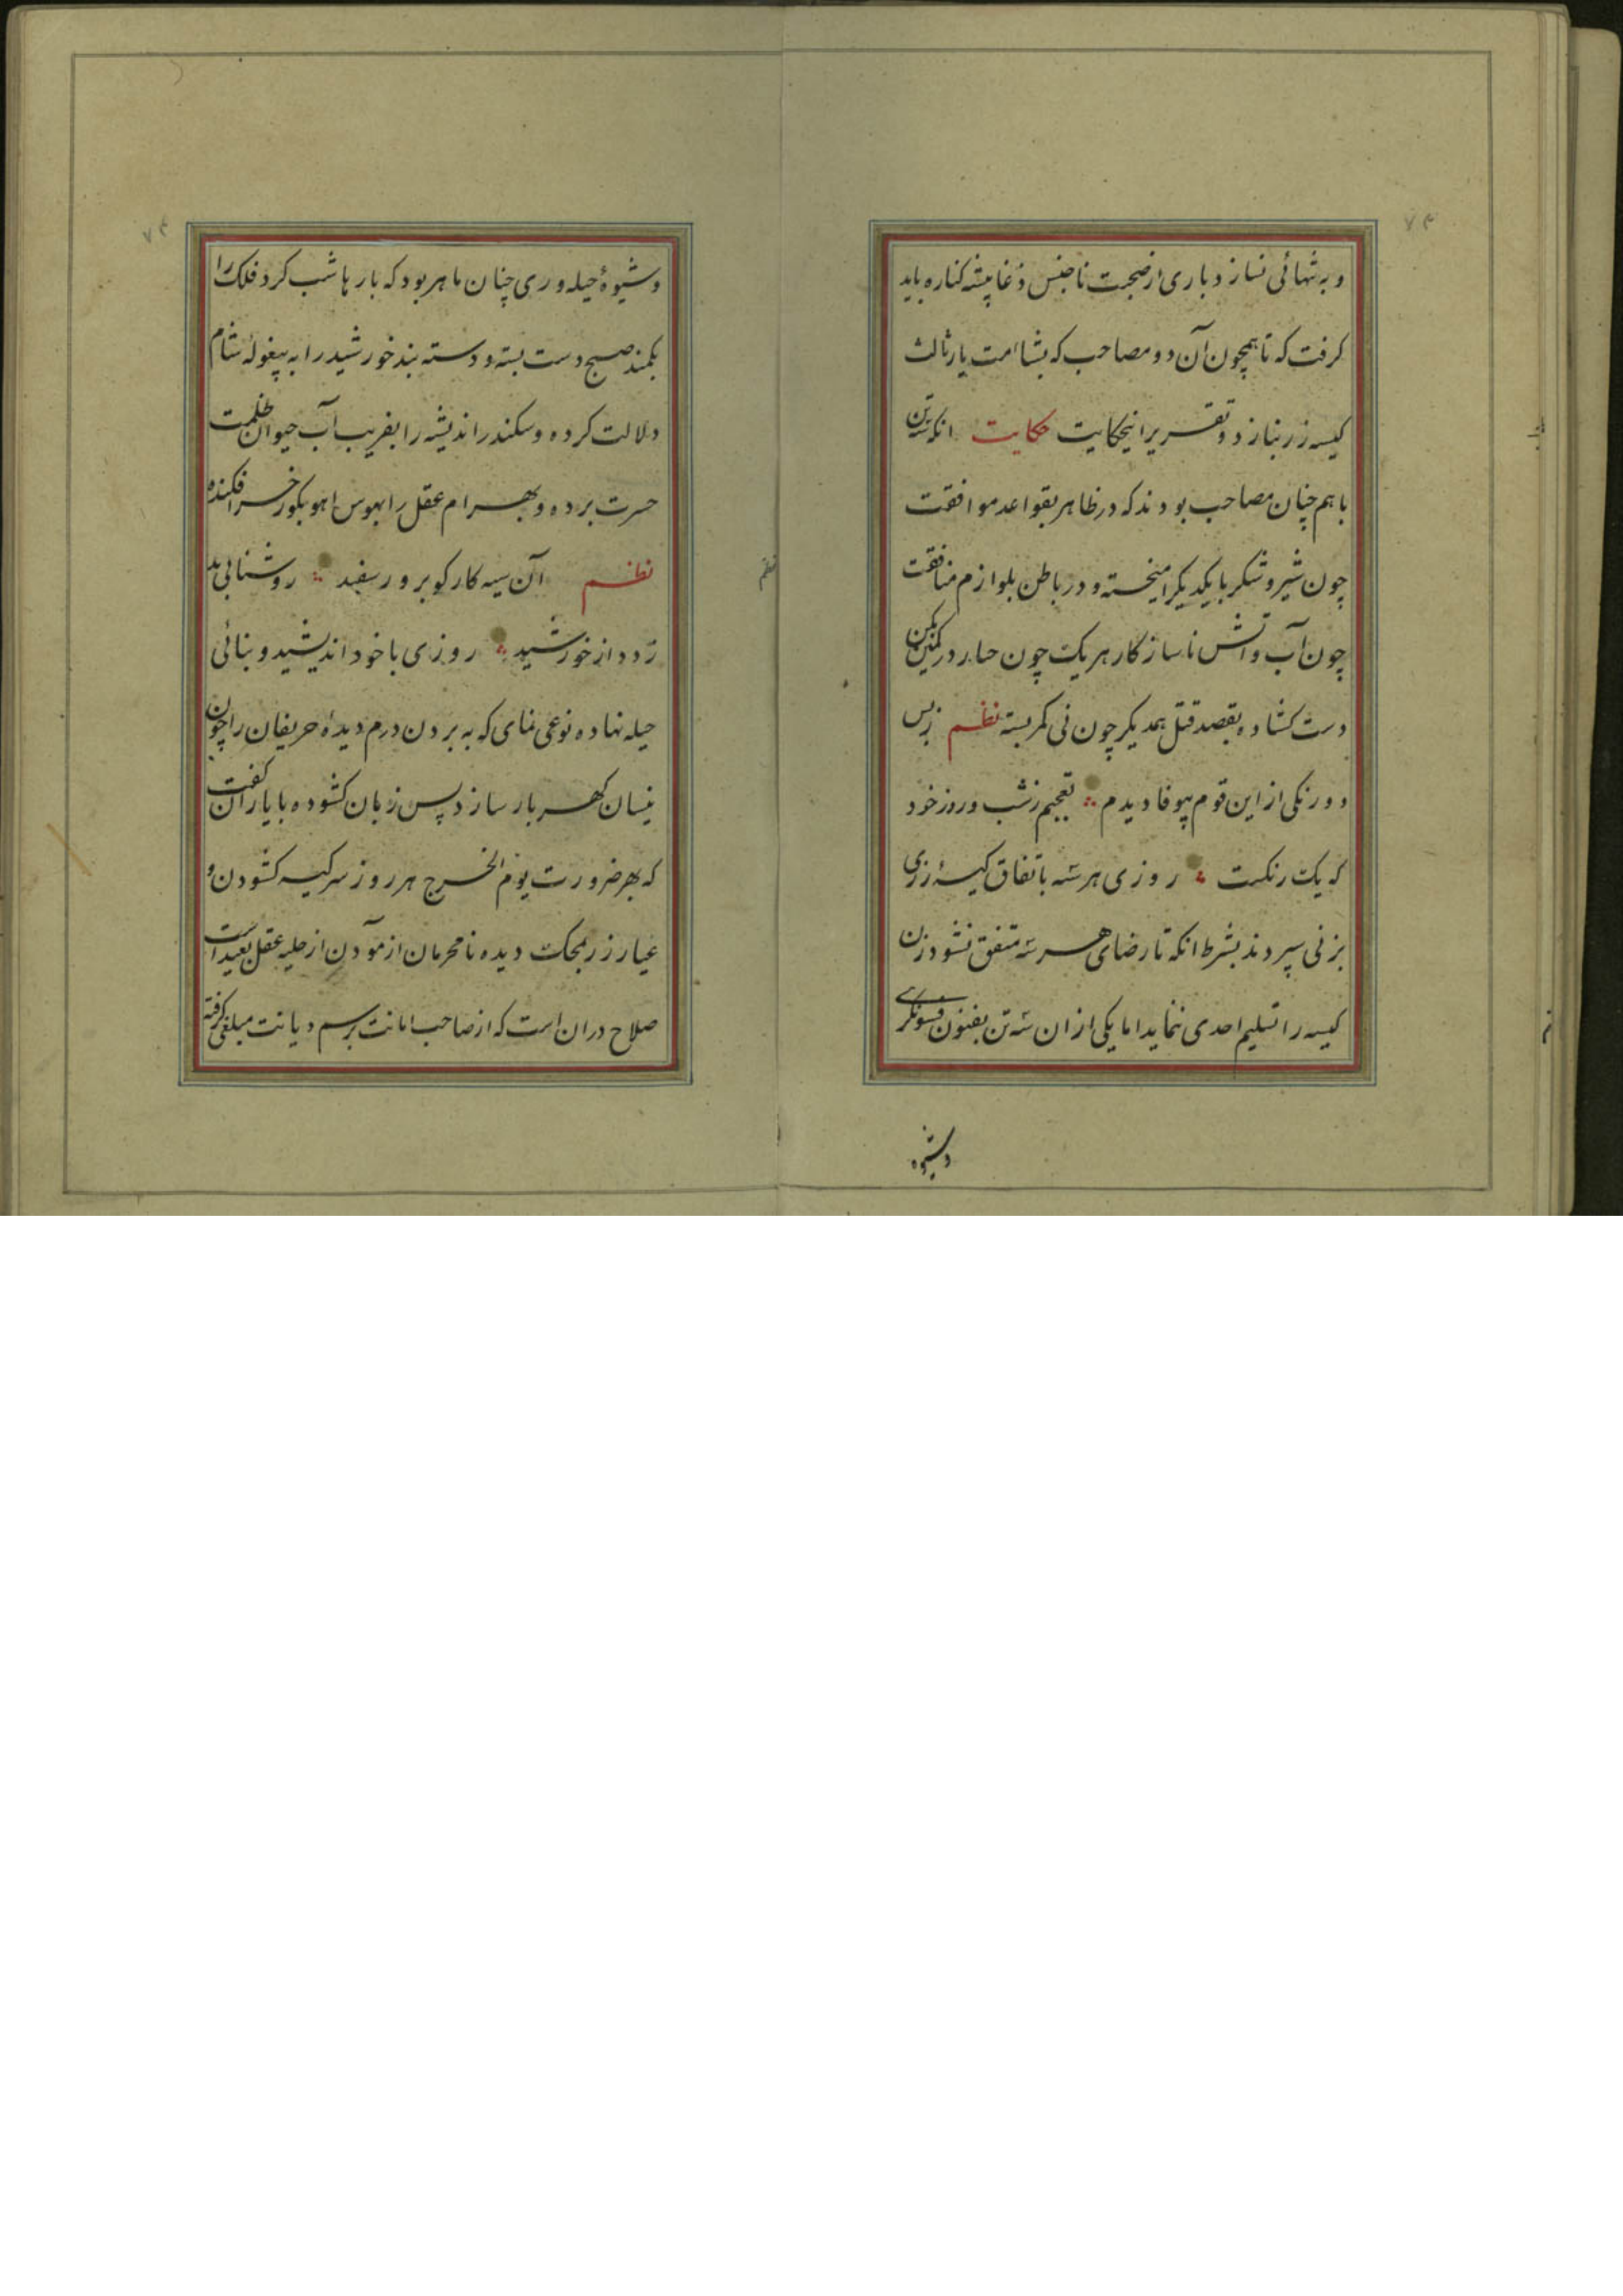 و به تنهائی نسازد باری از صحبت ناجنس دغا پیشه کناره باید
کرفت که تا همچون آن دو مصاحب که بشأمت یار ثالث
کیسه زر نبازد و تقریر اینحکایت حکایت انکه سه تن
با هم چنان مصاحب بودند که در ظاهر بقواعد موافقت
چون شیر و شکر با یکدیکر امیخته و در باطن بلوازم منافقت
چون آب و اتش ناساز کار هر یک چون در کمین
دست کشاده بقصد قتل همدیکر چون نی کمر بسته نظم زبس
دو رنکی از این قوم بیوفا دیدم تعجبم ز شب و روز خود
که یک رنکست روزی هر سه باتفاق کیسهٔ زری
بزنی سپردند بشرط انکه تا رضای هر سه متفق نشود زن
کیسه را تسلیم احدی ننماید اما یکی از ان سه تن بفنون فسونکری
وشیوه
۷۴
وشیوهٔ حیله وری چنان ماهر بود که بارها شب کرد فلک را
بکمند صبح دست بسته و دسته بند خورشید را به پیغولهٔ شام
دلالت کرده و سکندر اندیشه را بفریب آب حیوان ظلمت
حسرت برده و بهرام عقل را بهوس اهو بکور خر افکنده
نظم آن سیه کار کو برو ر سفید روشنایی بد
زدد از خورشید روزی با خود اندیشید و بنائی
حیله نهاده نوعی نمای که به بردن درم دیدهٔ حریفان را چون
نیسان کهر بار سازد پس زبان کشوده با یاران کفت
که بهر ضرورت یوم الخرج هر روز سر کیسه کشودن و
عیار زر بمحک دیده نامحرمان ازمودن از حلیه عقل بعید است
صلاح دران است که از صاحب امانت برسم دیانت مبلغی کرفته